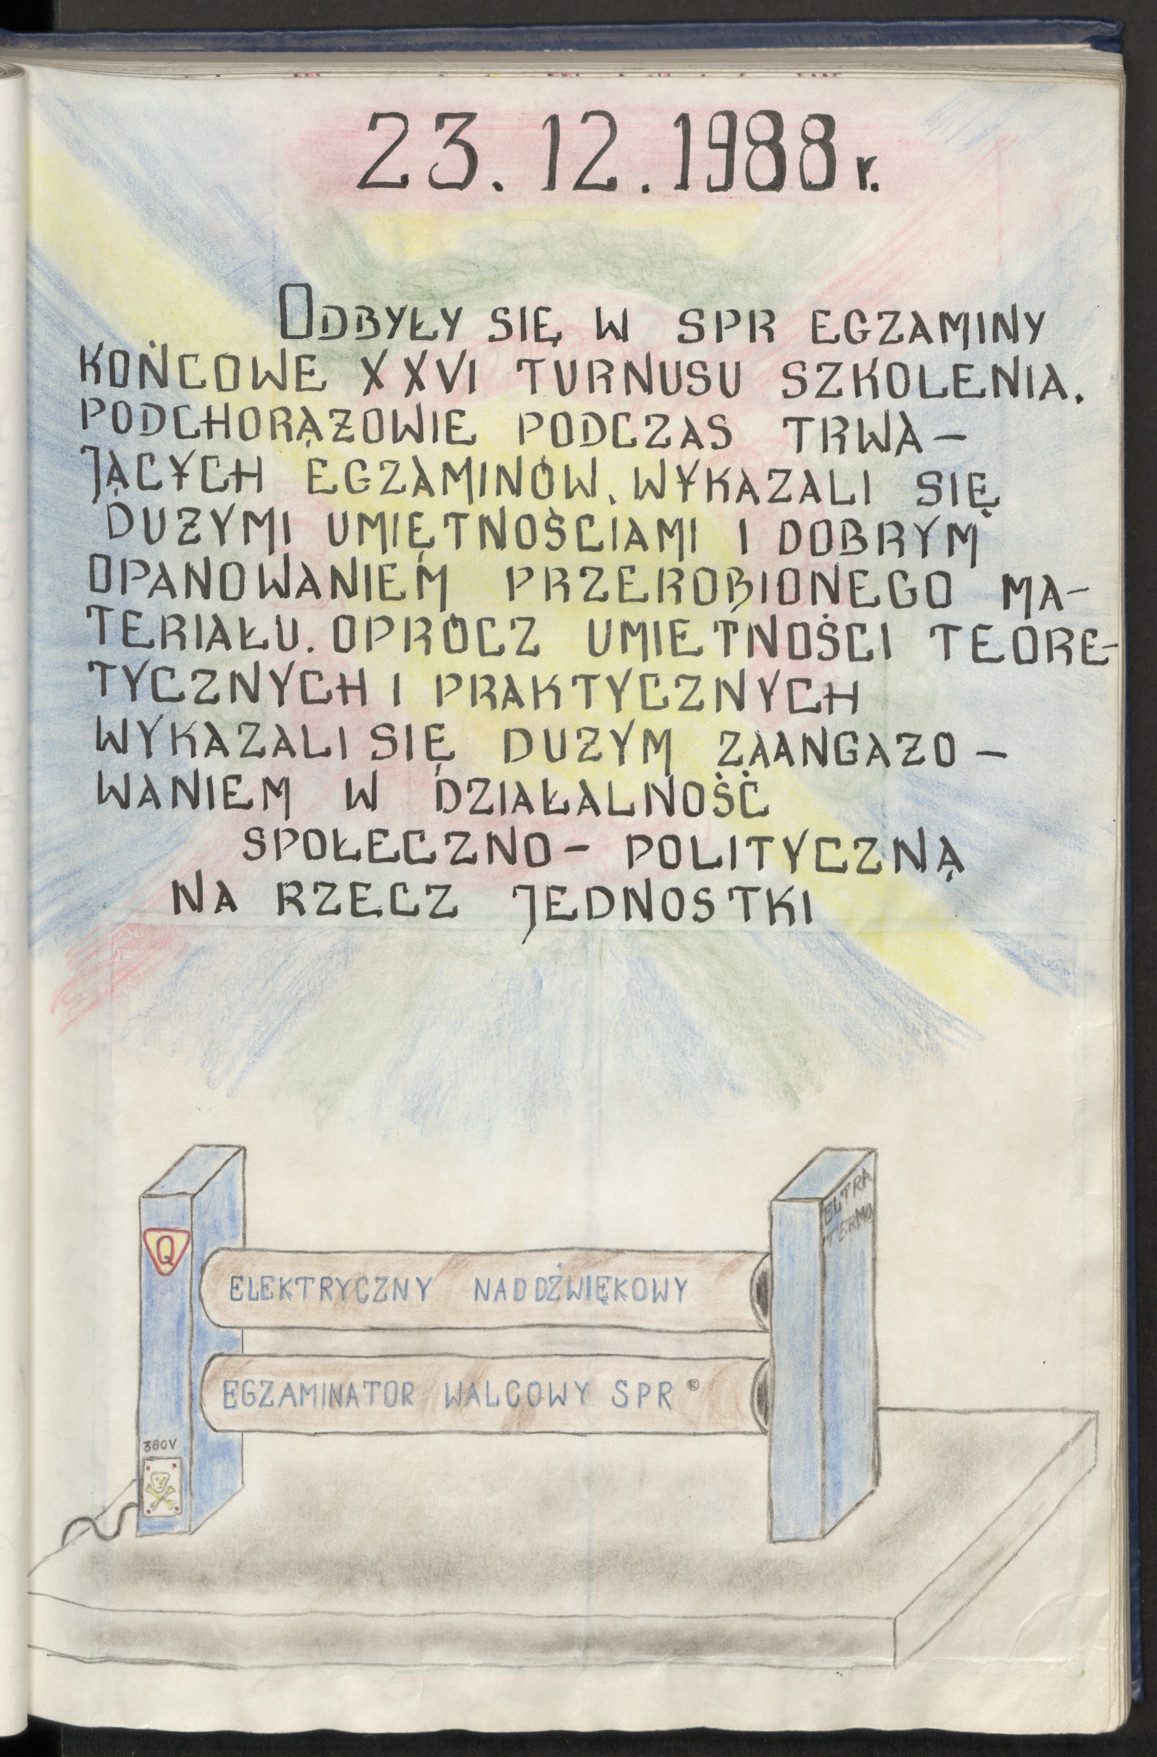 23.12.1988 r.
ODBYŁY SIĘ W SPR EGZAMINY
KOŃCOWE XXVI TURNUSU SZKOLENIA.
PODCHORĄŻOWIE PODCZAS TRWA-
JĄCYCH EGZAMINÓW, WYKAZALI SIĘ
DUŻYMI UMIĘTNOŚCIAMI I DOBRYM
OPANOWANIEM PRZEROBIONEGO MA-
TERIAŁU. OPRÓCZ UMIETNOŚCI TEORE-
TYCZNYCH I PRAKTYCZNYCH
WYKAZALI SIĘ DUZYM ZAANGAZO-
WANIEM W DZIAŁALNOŚĆ
SPOŁECZNO- POLITYCZNĄ
NA RZECZ JEDNOSTKI
ULTRA
TERMO
Q
ELEKTRYCZNY NADDŹWIĘKOWY
EGZAMINATOR WALCOWY SPR®
380V